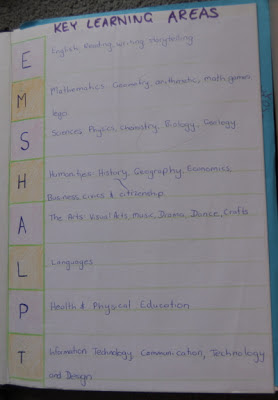 KEY LEARNING AREAS
E
English: Reading, writing, storytelling
M
Mathematics: Geometry, arithmetic, math games
lego
S
Sciences: Physics, chemistry, Biology, Geology
H
Humanities: History, Geography, Economics
Business, civics & citizenship
A
The Arts: Visual Arts, Music, Drama, Dance, Crafts
L
Languages
P
Health & Physical Education
T
Information Technology, Communication, Technology
and Design